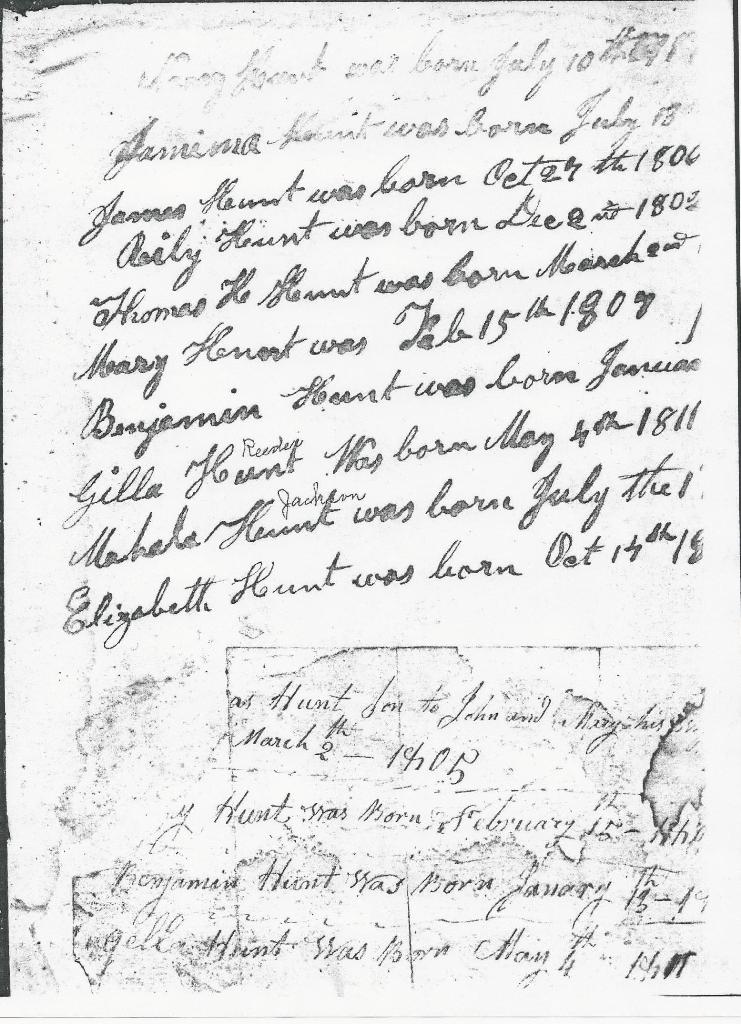 Hunt was born July 10th
Jamima Hunt was born July 18
James Hunt was born Oct 27th 1800
Reily Hunt was born Dec 2nd 1802
Thomas H Hunt was born March 2nd
Mary Hunt was Feb 15th 1807
Benjamin Hunt was born Januar
Reeder
Gilla Hunt Was born May 4th 1811
Jackson
Mahala Hunt was born July the 1
Elizabeth Hunt was born Oct 14th 18
as Hunt Son to John and Mary his
March 2th - 1805
y Hunt Was Born February 15th - 180
Benjamin Hunt Was Born Janary 13th - 18
Gella Hunt Was Born May 4th 1811